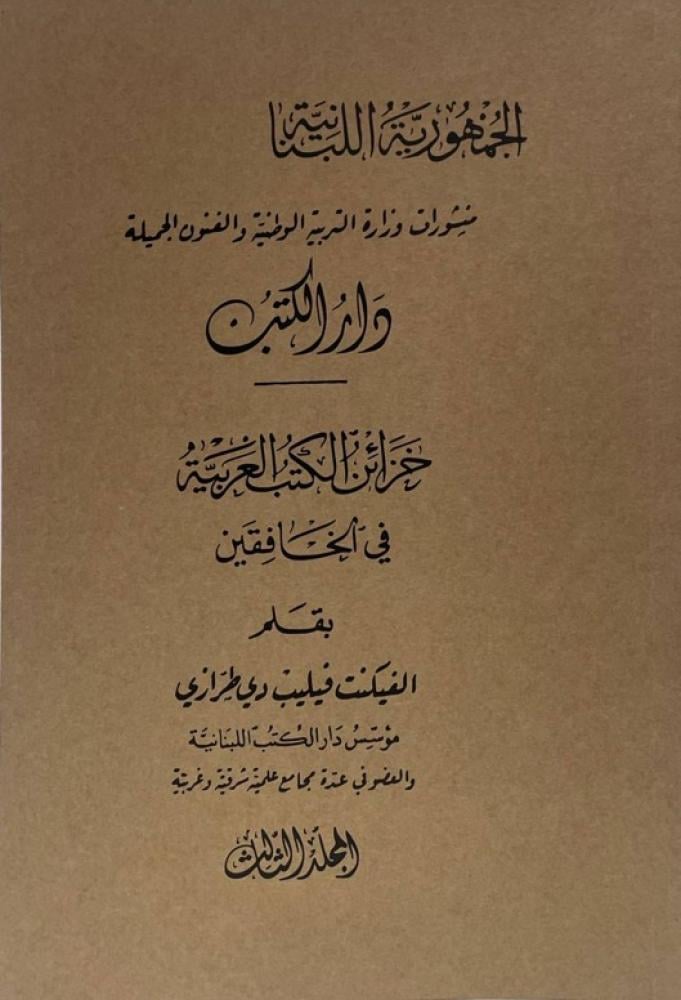 الجُمْهُورِيَّةُ اللُّبْنَانِيَّة
منشورات وزارة التربية الوطنيّة والفنون الجميلة
دَارُ الكُتُبْ
خَزَائِنُ الكُتُبُ العَرَبِيَّةُ
في الخَافِقَين
بقَلَم
الفيكنت فيليب دي طرّازي
مؤسِّسْ دَار الكتبُ اللبنانيَّة
والعضو في عدّة مجامع علميّة شرقيّة وغربيّة
المجلد الثالث